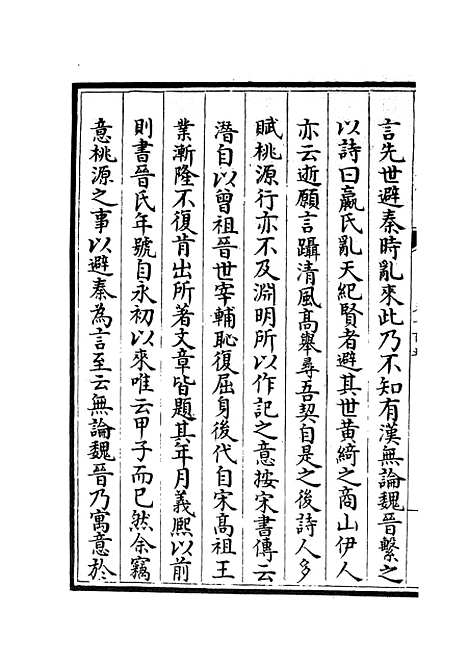 言先世避秦時亂來此乃不知有漢無論魏晉繫之
以詩曰嬴氏亂天紀賢者避其世黄綺之商山伊人
亦云逝願言躡清風高舉尋吾契自是之後詩人多
賦桃源行亦不及淵明所以作記之意按宋書傳云
潛自以曾祖晉世宰輔恥復屈身後代自宋高祖王
業漸隆不復肯出所著文章皆題其年月義熙以前
則書晉氏年號自永初以來唯云甲子而已然余竊
意桃源之事以避秦為言至云無論魏晉乃寓意於